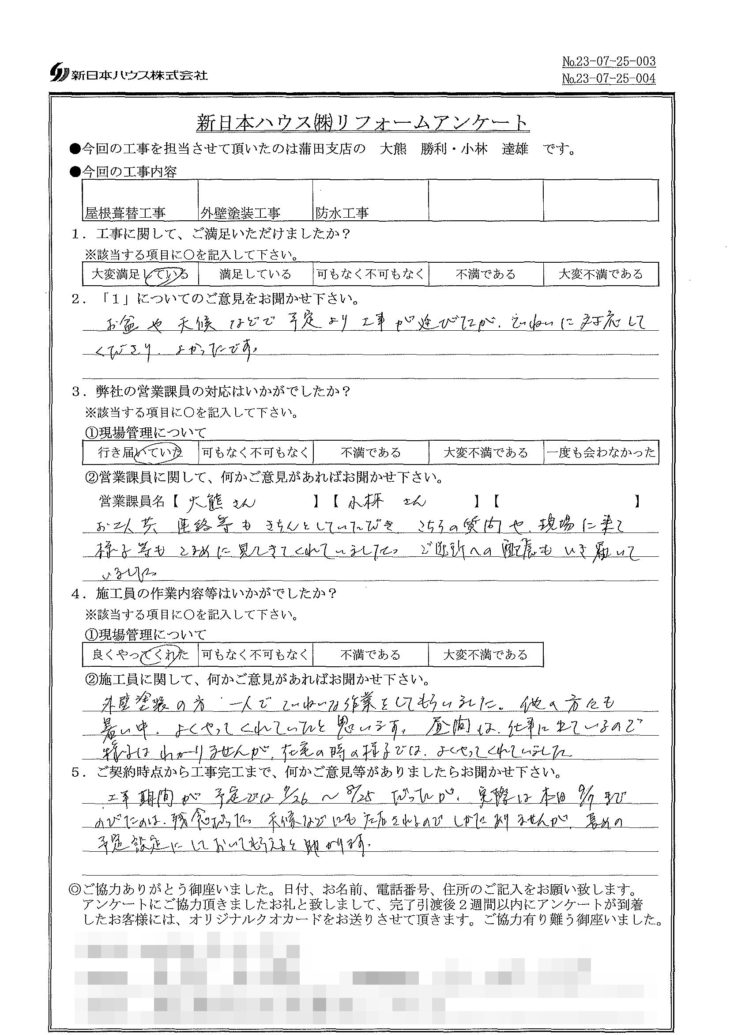 新日本ハウス株式会社
No.23-07-25-003
No.23-07-25-004
新日本ハウス㈱リフォームアンケート
●今回の工事を担当させて頂いたのは蒲田支店の 大熊 勝利・小林 達雄 です。
●今回の工事内容
屋根葺替工事 外壁塗装工事 防水工事
1．工事に関して、ご満足いただけましたか？
※該当する項目に○を記入して下さい。
大変満足している 満足している 可もなく不可もなく 不満である 大変不満である
2．「1」についてのご意見をお聞かせ下さい。
お盆や天候などで予定より工事が延びたが、ていねいに対応して
くださり、よかったです。
3．弊社の営業課員の対応はいかがでしたか？
※該当する項目に○を記入して下さい。
①現場管理について
行き届いていた 可もなく不可もなく 不満である 大変不満である 一度も会わなかった
②営業課員に関して、何かご意見があればお聞かせ下さい。
営業課員名【 大熊さん 】【 小林 さん 】【 】
お二人共 連絡等もきちんとしていただき こちらの質問や、現場に来て
様子等も こまめに見にきてくれていました。ご近所への配慮もいき届いて
いました。
4．施工員の作業内容等はいかがでしたか？
※該当する項目に○を記入して下さい。
①現場管理について
良くやってくれた 可もなく不可もなく 不満である 大変不満である
②施工員に関して、何かご意見があればお聞かせ下さい。
外壁塗装の方 一人でていねいな作業をしてもらいました。他の方々も
暑い中、よくやってくれていたと思います。昼間は、仕事に出ているので
様子はわかりませんが、在宅の時の様子では、よくやってくれていました
5．ご契約時点から工事完工まで、何かご意見等がありましたらお聞かせ下さい。
工事期間が 予定では 7/26 〜 8/25 だったが、実際は本日 9/ まで
のびたのは、残念だった。天候などにも左右されるのでしかたありませんが、長めの
予定設定にしておいてもらえると助かります。
◎ご協力ありがとう御座いました。日付、お名前、電話番号、住所のご記入をお願い致します。
アンケートにご協力頂きましたお礼と致しまして、完了引渡後2週間以内にアンケートが到着
したお客様には、オリジナルクオカードをお送りさせて頂きます。ご協力有り難う御座いました。